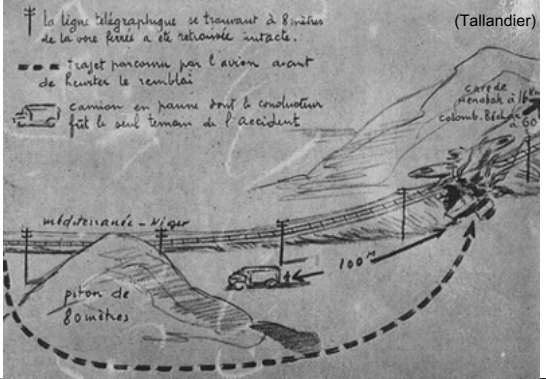 la ligne télégraphique se trouvant à 8 mètres
de la voie ferrée a été retrouvée intacte.
(Tallandier)
trajet parcouru par l'avion avant
de heurter le remblai
camion en panne dont le conducteur
fût le seul temoin de l'accident
gare de
menabah à 16 Km
colomb. Béchar
à 60
méditerranée - Niger
100 M
piton de
80 mètres